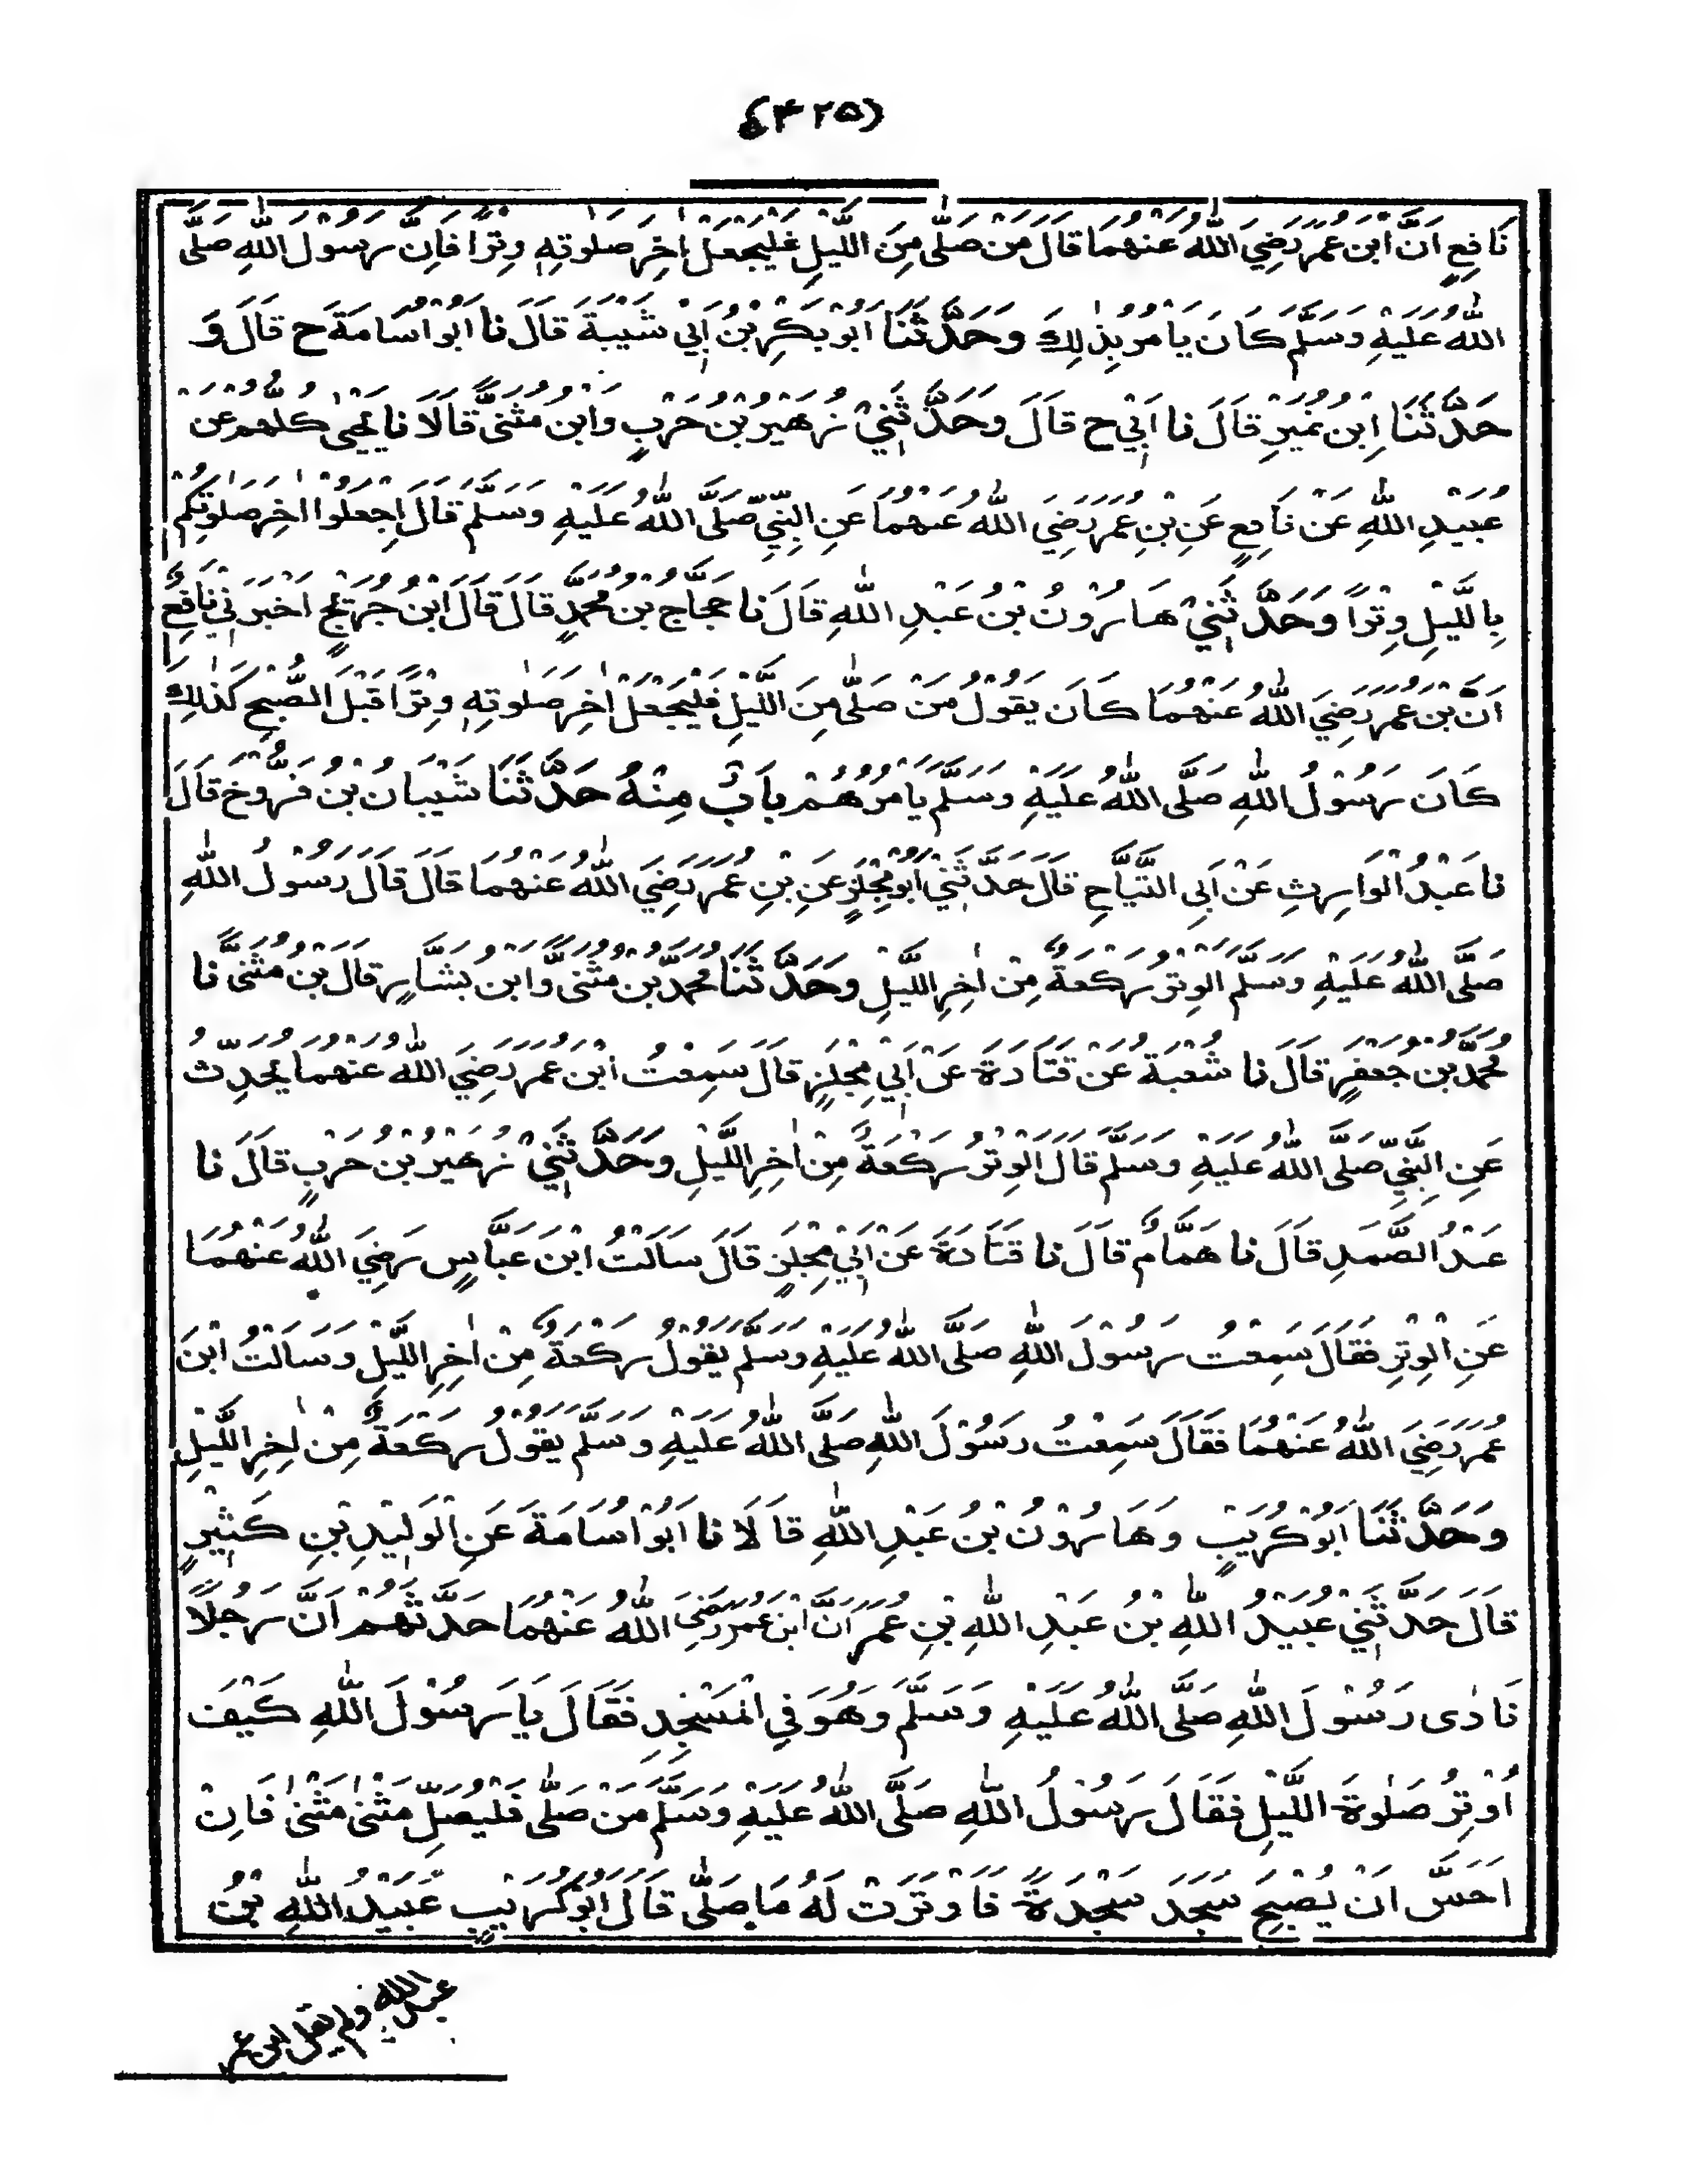 (۴۲۵)
نَافِعٍ اَنَّ ابْنَ عُمَرَ رَضِيَ اللّٰهُ عَنْهُمَا قَالَ مَنْ صَلّٰى مِنَ اللَّيْلِ فَلْيَجْعَلْ اٰخِرَ صَلٰوتِهٖ وِتْرًا فَاِنَّ رَسُوْلَ اللّٰهِ صَلَّى
اللّٰهُ عَلَيْهِ وَسَلَّمَ كَانَ يَاْمُرُ بِذٰلِكَ وَحَدَّثَنَا اَبُوْ بَكْرِ بْنُ اَبِيْ شَيْبَةَ قَالَ نا اَبُوْ اُسَامَةَ ح قَالَ وَ
حَدَّثَنَا اِبْنُ نُمَيْرٍ قَالَ نا اَبِيْ ح قَالَ وَحَدَّثَنِيْ زُهَيْرُ بْنُ حَرْبٍ وَابْنُ مُثَنًّى قَالَا نا يَحْيٰى كُلُّهُمْ عَنْ
عُبَيْدِ اللّٰهِ عَنْ نَافِعٍ عَنِ بْنِ عُمَرَ رَضِيَ اللّٰهُ عَنْهُمَا عَنِ النَّبِيِّ صَلَّى اللّٰهُ عَلَيْهِ وَسَلَّمَ قَالَ اِجْعَلُوْا اٰخِرَ صَلٰوتِكُمْ
بِاللَّيْلِ وِتْرًا وَحَدَّثَنِيْ هَارُوْنُ بْنُ عَبْدِ اللّٰهِ قَالَ نا حَجَّاجُ بْنُ مُحَمَّدٍ قَالَ قَالَ ابْنُ جُرَيْجٍ اَخْبَرَنِيْ نَافِعٌ
اَنَّ بْنَ عُمَرَ رَضِيَ اللّٰهُ عَنْهُمَا كَانَ يَقُوْلُ مَنْ صَلّٰى مِنَ اللَّيْلِ فَلْيَجْعَلْ اٰخِرَ صَلٰوتِهٖ وِتْرًا قَبْلَ الصُّبْحِ كَذٰلِكَ
كَانَ رَسُوْلُ اللّٰهِ صَلَّى اللّٰهُ عَلَيْهِ وَسَلَّمَ يَاْمُرُهُمْ بَابٌ مِنْهُ حَدَّثَنَا شَيْبَانُ بْنُ فَرُّوْخَ قَالَ
نا عَبْدُ الْوَارِثِ عَنْ اَبِى التَّيَّاحِ قَالَ حَدَّثَنِيْ اَبُوْ مِجْلَزٍ عَنِ بْنِ عُمَرَ رَضِيَ اللّٰهُ عَنْهُمَا قَالَ قَالَ رَسُوْلُ اللّٰهِ
صَلَّى اللّٰهُ عَلَيْهِ وَسَلَّمَ الْوِتْرُ رَكْعَةٌ مِنْ اٰخِرِ اللَّيْلِ وَحَدَّثَنَا مُحَمَّدُ بْنُ مُثَنًّى وَّابْنُ بَشَّارٍ قَالَ بْنُ مُثَنًّى نا
مُحَمَّدُ بْنُ جَعْفَرٍ قَالَ نا شُعْبَةُ عَنْ قَتَادَةَ عَنْ اَبِيْ مِجْلَزٍ قَالَ سَمِعْتُ ابْنَ عُمَرَ رَضِيَ اللّٰهُ عَنْهُمَا يُحَدِّثُ
عَنِ النَّبِيِّ صَلَّى اللّٰهُ عَلَيْهِ وَسَلَّمَ قَالَ الْوِتْرُ رَكْعَةٌ مِنْ اٰخِرِ اللَّيْلِ وَحَدَّثَنِيْ زُهَيْرُ بْنُ حَرْبٍ قَالَ نا
عَبْدُ الصَّمَدِ قَالَ نا هَمَّامٌ قَالَ نا قَتَادَةُ عَنْ اَبِيْ مِجْلَزٍ قَالَ سَاَلْتُ ابْنَ عَبَّاسٍ رَضِيَ اللّٰهُ عَنْهُمَا
عَنِ الْوِتْرِ فَقَالَ سَمِعْتُ رَسُوْلَ اللّٰهِ صَلَّى اللّٰهُ عَلَيْهِ وَسَلَّمَ يَقُوْلُ رَكْعَةٌ مِنْ اٰخِرِ اللَّيْلِ وَسَاَلْتُ ابْنَ
عُمَرَ رَضِيَ اللّٰهُ عَنْهُمَا فَقَالَ سَمِعْتُ رَسُوْلَ اللّٰهِ صَلَّى اللّٰهُ عَلَيْهِ وَسَلَّمَ يَقُوْلُ رَكْعَةٌ مِنْ اٰخِرِ اللَّيْلِ
وَحَدَّثَنَا اَبُوْ كُرَيْبٍ وَهَارُوْنُ بْنُ عَبْدِ اللّٰهِ قَالَا نا اَبُوْ اُسَامَةَ عَنِ الْوَلِيْدِ بْنِ كَثِيْرٍ
قَالَ حَدَّثَنِيْ عُبَيْدُ اللّٰهِ بْنُ عَبْدِ اللّٰهِ بْنِ عُمَرَ اَنَّ ابْنَ عُمَرَ رَضِيَ اللّٰهُ عَنْهُمَا حَدَّثَهُمْ اَنَّ رَجُلًا
نَادٰى رَسُوْلَ اللّٰهِ صَلَّى اللّٰهُ عَلَيْهِ وَسَلَّمَ وَهُوَ فِي الْمَسْجِدِ فَقَالَ يَا رَسُوْلَ اللّٰهِ كَيْفَ
اُوْتِرُ صَلٰوةَ اللَّيْلِ فَقَالَ رَسُوْلُ اللّٰهِ صَلَّى اللّٰهُ عَلَيْهِ وَسَلَّمَ مَنْ صَلّٰى فَلْيُصَلِّ مَثْنٰى مَثْنٰى فَاِنْ
اَحَسَّ اَنْ يُصْبِحَ سَجَدَ سَجْدَةً فَاَوْتَرَتْ لَهُ مَا صَلّٰى قَالَ اَبُوْ كُرَيْبٍ عُبَيْدُ اللّٰهِ بْنُ
عبد الله ولم يقل ابن عمر